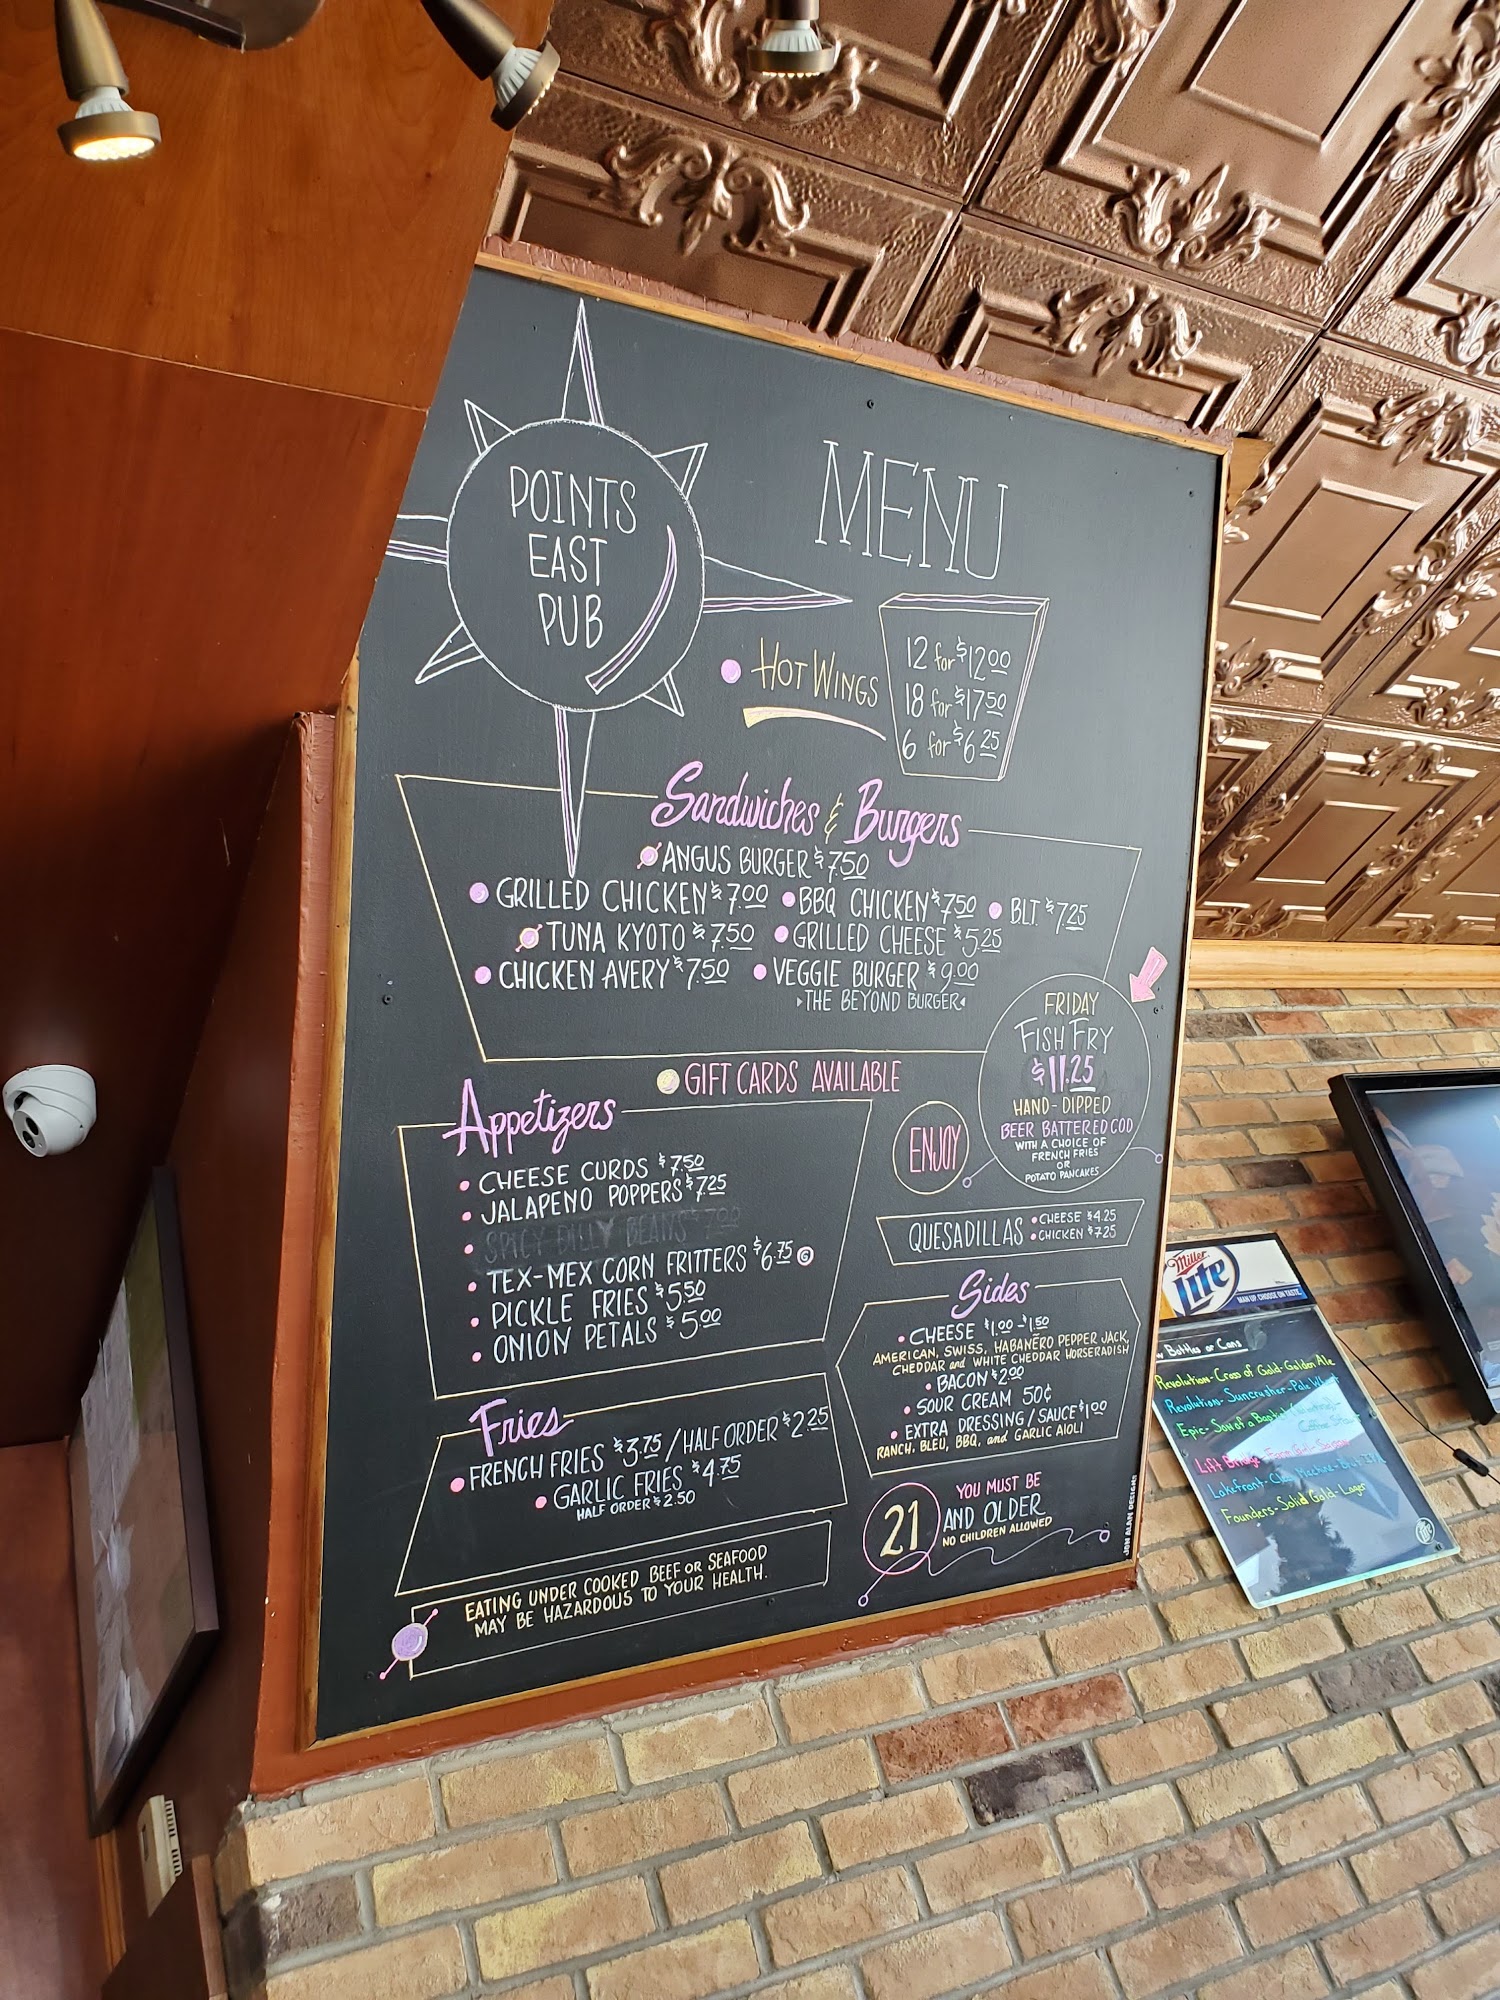 POINTS
EAST
PUB
MENU
HOT WINGS
12 for $12.00
18 for $17.50
6 for $6.25
Sandwiches & Burgers
ANGUS BURGER $7.50
GRILLED CHICKEN $7.00 BBQ CHICKEN $7.50 BLT $7.25
TUNA KYOTO $7.50 GRILLED CHEESE $5.25
CHICKEN AVERY $7.50 VEGGIE BURGER $9.00
THE BEYOND BURGER
GIFT CARDS AVAILABLE
FRIDAY
FISH FRY
$11.25
HAND-DIPPED
BEER BATTERED COD
WITH A CHOICE OF
FRENCH FRIES
OR
POTATO PANCAKES
ENJOY
Appetizers
CHEESE CURDS $7.50
JALAPENO POPPERS $7.25
SPICY DILLY BEANS $7.00
TEX-MEX CORN FRITTERS $6.75 G
PICKLE FRIES $5.50
ONION PETALS $5.00
QUESADILLAS
CHEESE $4.25
CHICKEN $7.25
Sides
CHEESE $1.00-$1.50
AMERICAN, SWISS, HABANERO PEPPER JACK,
CHEDDAR and WHITE CHEDDAR HORSERADISH
BACON $2.00
SOUR CREAM 50¢
EXTRA DRESSING/SAUCE $1.00
RANCH, BLEU, BBQ, and GARLIC AIOLI
Fries
FRENCH FRIES $3.75 / HALF ORDER $2.25
GARLIC FRIES $4.75
HALF ORDER $2.50
EATING UNDER COOKED BEEF OR SEAFOOD
MAY BE HAZARDOUS TO YOUR HEALTH.
21
YOU MUST BE
AND OLDER
NO CHILDREN ALLOWED
JON ALAN DESIGNS
Miller
Lite
MAN UP. CHOOSE ON TASTE.
Bottles or Cans
Revolution-Cross of Gold-Golden Ale
Revolution-Suncrusher-Pale
Epic-Son of a Baptist
Lift Bridge
Lakefront-
Founders-Solid Gold-Lager